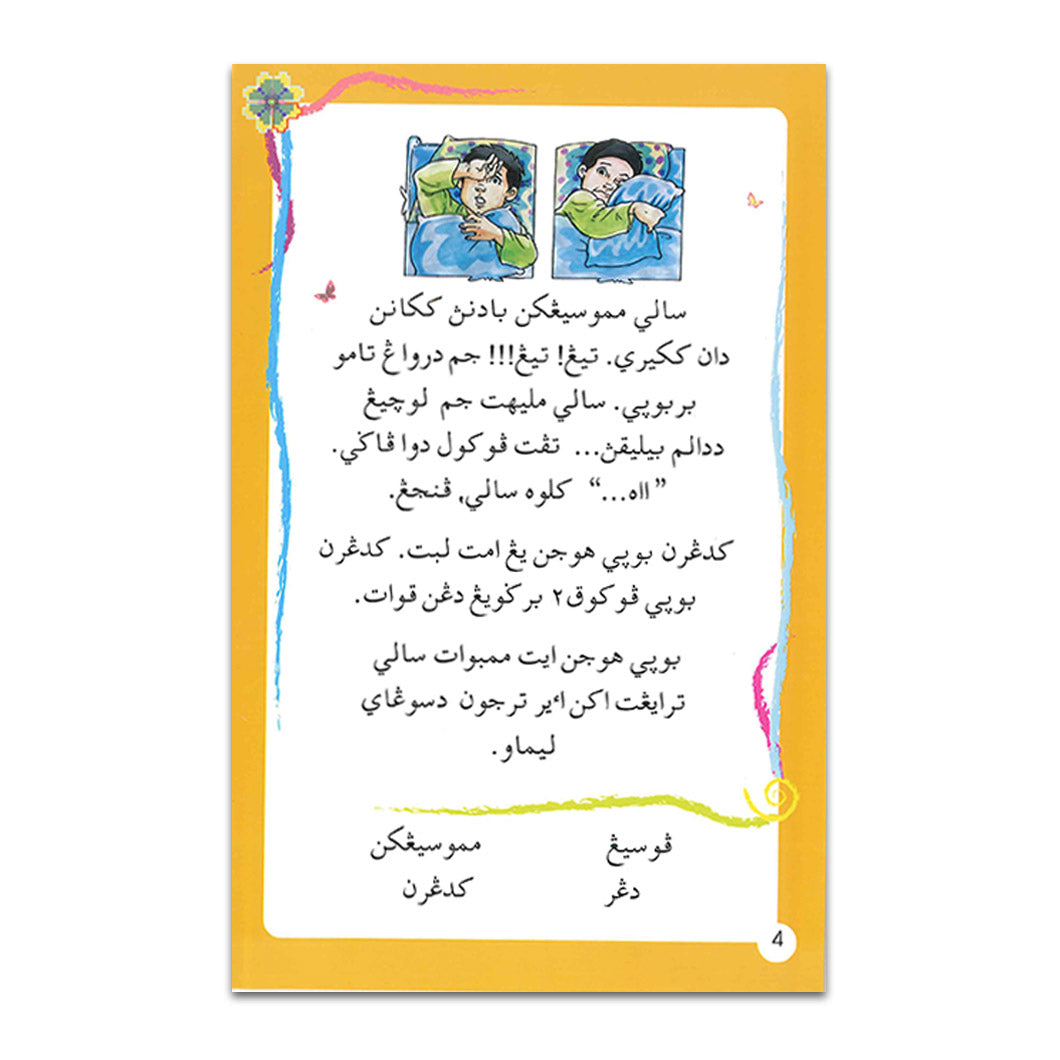 سالي مموسيڠکن بادنڽ ککانن
دان ککيري. تيڠ! تيڠ!!! جم درواڠ تامو
بربوڽي. سالي مليهت جم لوچيڠ
ددالم بيليقڽ... تڤت ڤوکول دوا ڤاݢي.
”ااه...“ کلوه سالي, ڤنجڠ.
کدڠرن بوڽي هوجن يڠ امت لبت. کدڠرن
بوڽي ڤوکوق٢ برݢويڠ دڠن قوات.
بوڽي هوجن ايت ممبوات سالي
ترايڠت اکن اٴير ترجون دسوڠاي
ليماو.
ڤوسيڠ مموسيڠکن
دڠر کدڠرن
4